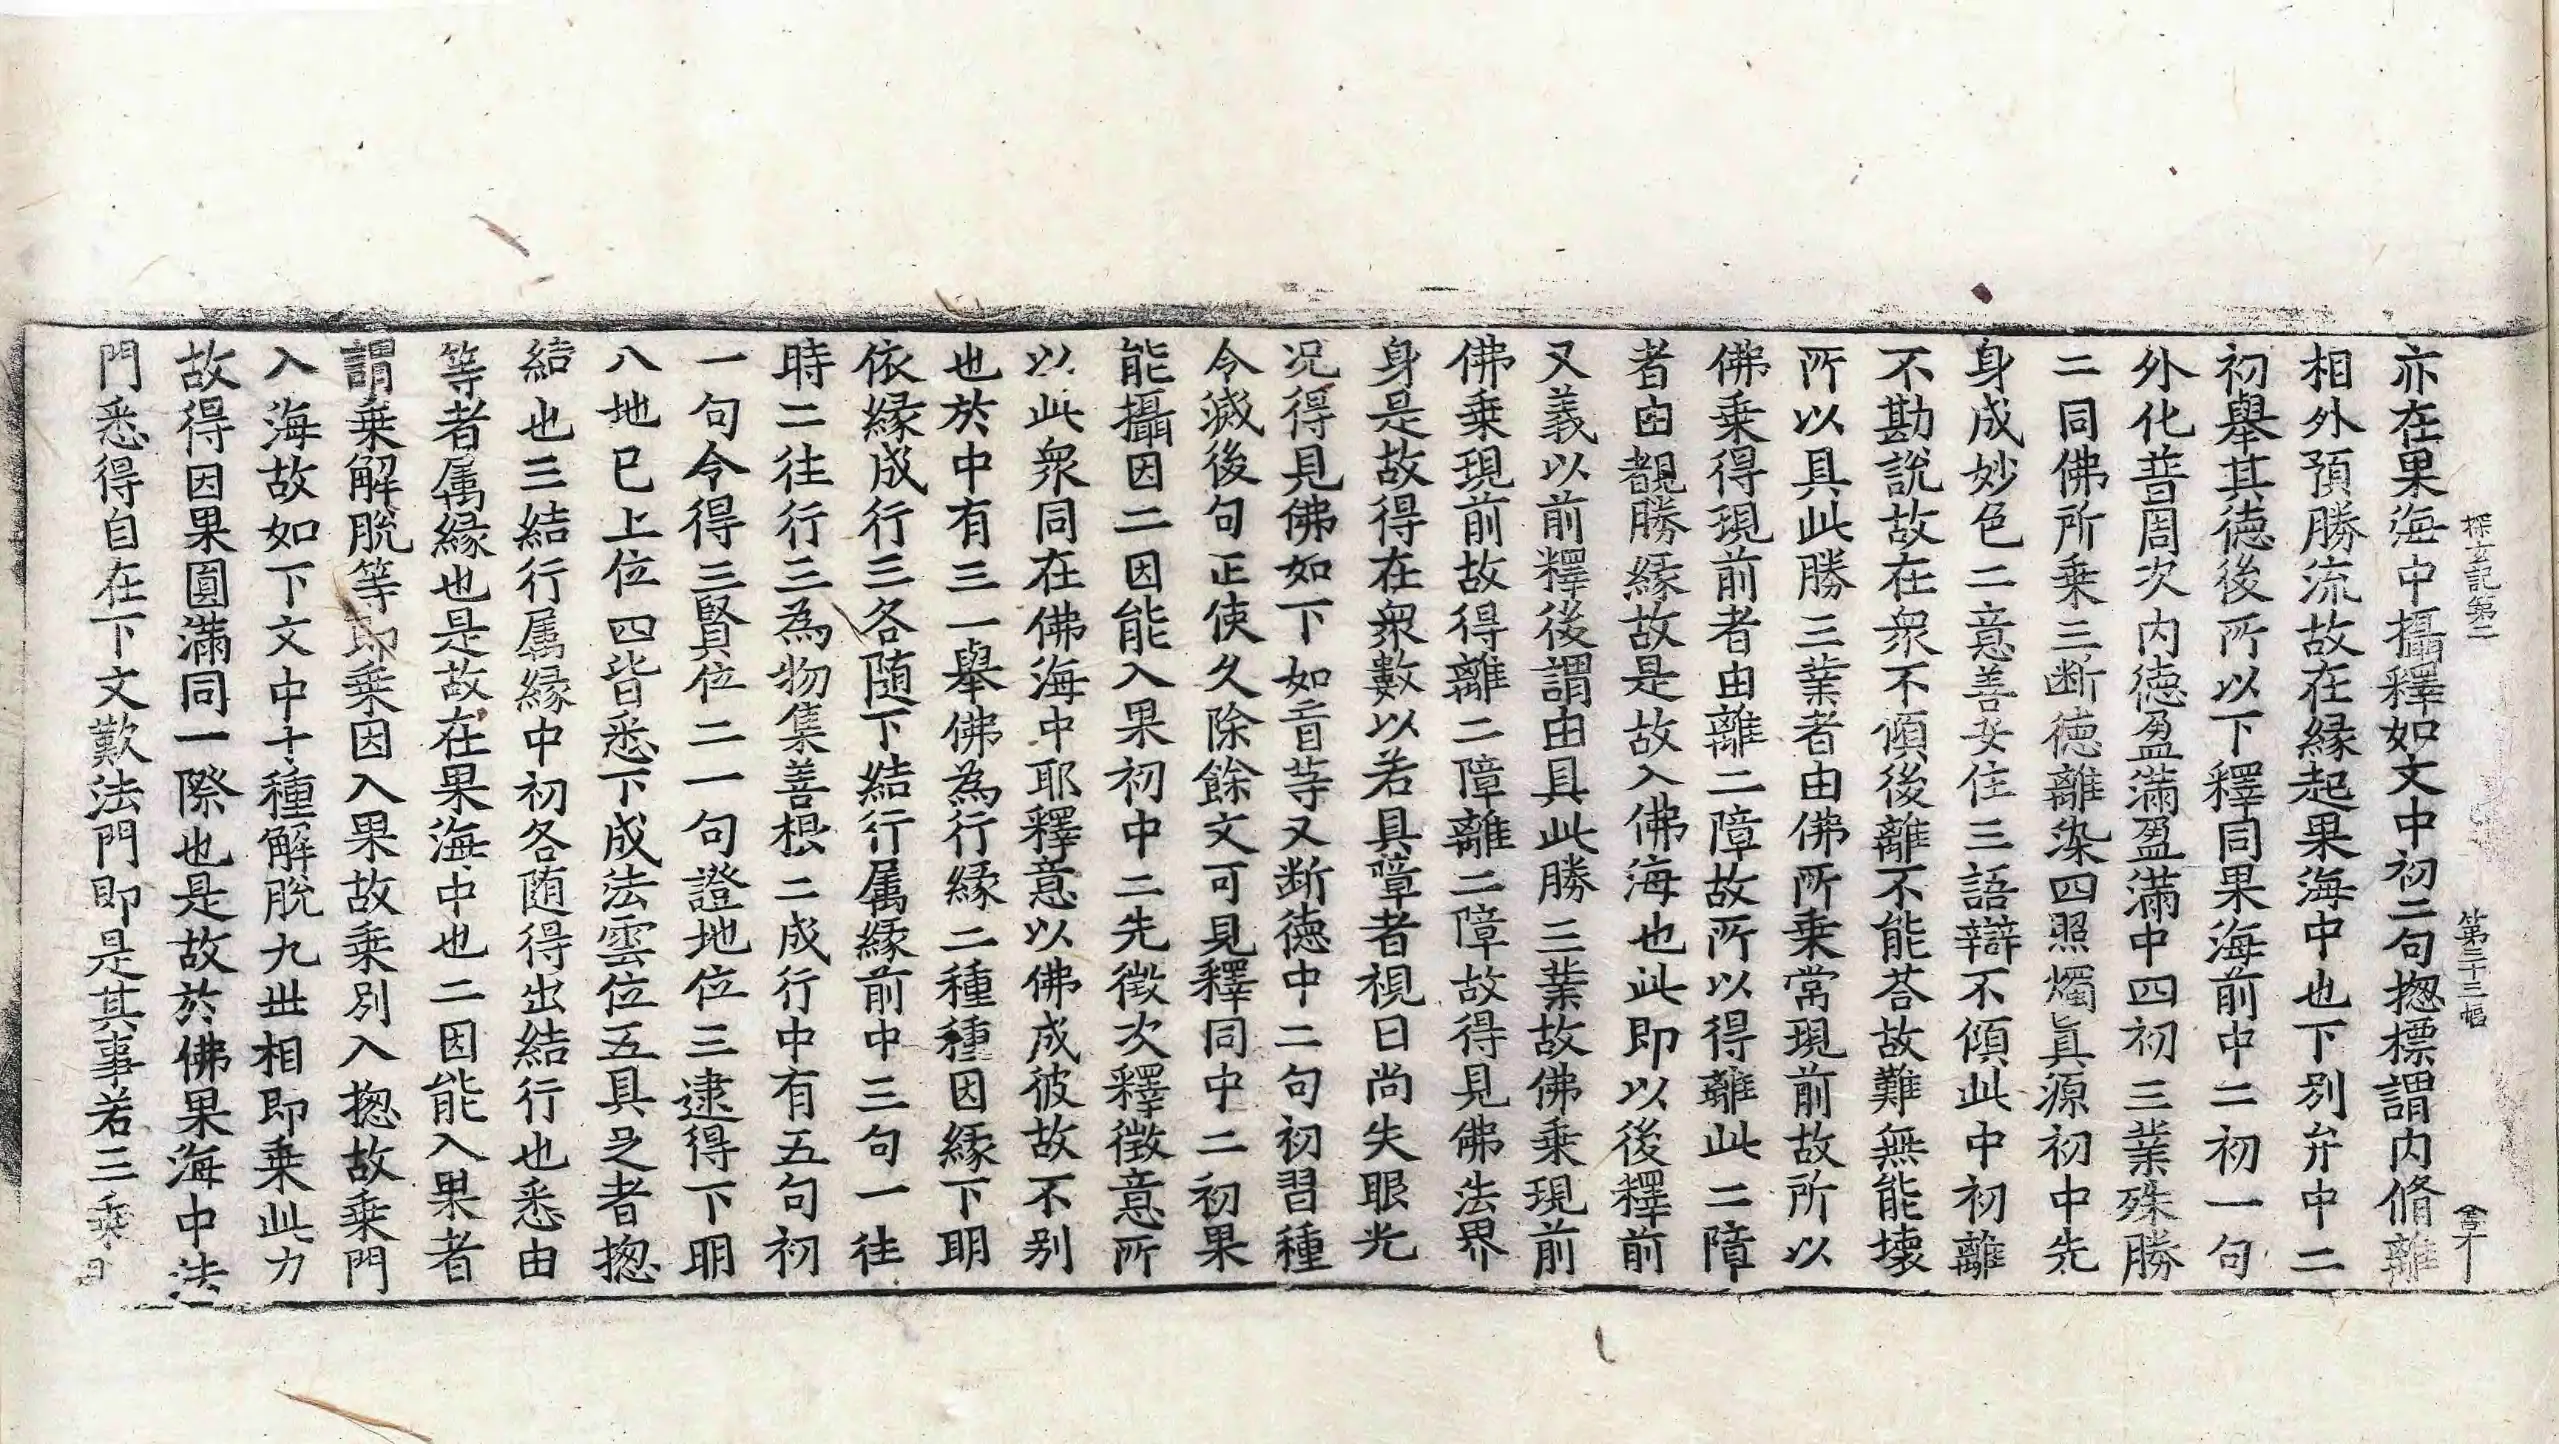 探玄記第二　第三十三幅
亦在果海中攝釋如文中初二句揔標謂内脩離
相外預勝流故在縁起果海中也下別弁中二
初舉其德後所以下釋同果海前中二初一句
外化昔周次内德盈滿盈滿中四初三業殊勝
二同佛所乗三断徳離染四照燭眞源初中先
身成妙色二意善安住三語辯不傾此中初離
不勘說故在衆不傾後離不能荅故難無能壞
所以具此勝三業者由佛所乗常現前故所以
佛乗得現前者由離二障故所以得離此二障
者由覩勝縁故是故入佛海也此即以後釋前
又義以前釋後謂由具此勝三業故佛乗現前
佛乗現前故得離二障離二障故得見佛法界
身是故得在衆數以若具障者視日尚失眼光
况得見佛如下如盲等又断德中二句初習種
令滅後句正使久除餘文可見釋同中二初果
能攝因二因能入果初中二先徴次釋徴意所
以此衆同在佛海中耶釋意以佛成彼故不别
也於中有三一舉佛為行縁二種種因縁下明
依縁成行三各随下結行属縁前中三句一往
時二往行三為物集善根二成行中有五句初
一句令得三賢位二一句證地位三逮得下明
八地已上位四皆悉下成法雲位五具足者揔
結也三結行属縁中初各随得出結行也悉由
等者属縁也是故在果海中也二因能入果者
謂乗解脱等即乗因入果故乗別入揔故乗門
入海故如下文中十種解脱九世相即乗此力
故得因果圓滿同一際也是故於佛果海中法
門悉得自在下文歎法門即是其事若三乗